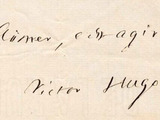 aimer, c'est agir
Victor Hugo